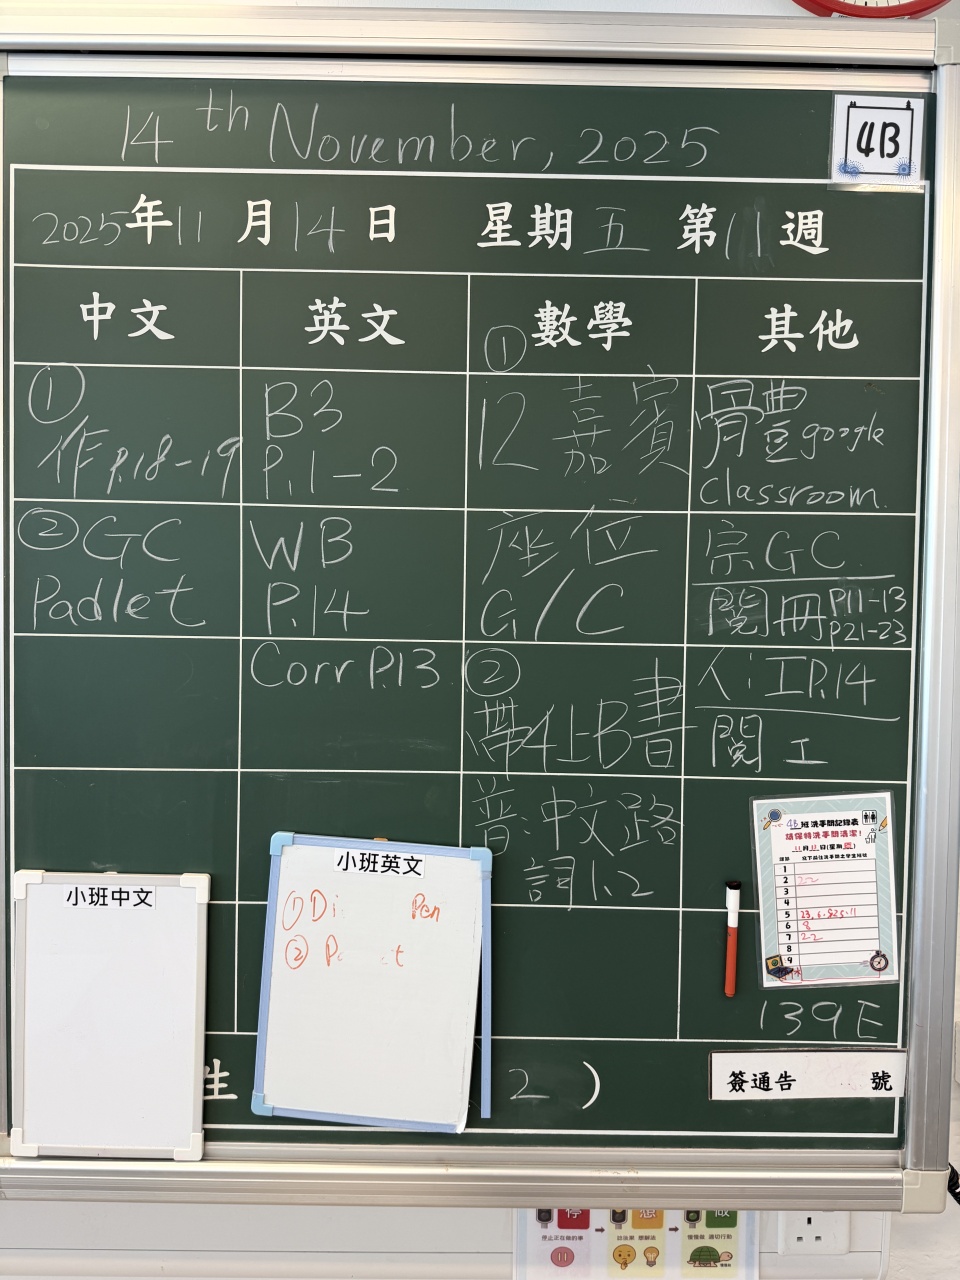 14th November, 2025
4B
2025年11月14日 星期五 第11週
中文
英文
數學
其他
①
作P.18-19
②GC
Padlet
B3
P.1-2
WB
P.14
Corr P.13
①
12 嘉賓
座位
G/C
②
帶4上B書
普:中文路
詞1,2
體google
classroom.
宗GC
閱冊P11-13
P21-23
人:工P.14
閱工
4B班洗手間記錄表
請保持洗手間清潔!
1
2 22
3
4
5 23, 6, 8, 25, 11
6 8
7 22
8
9
139E
簽通告 號
小班中文
小班英文
① Di Pen
② P t
生
2 )
停
想
做